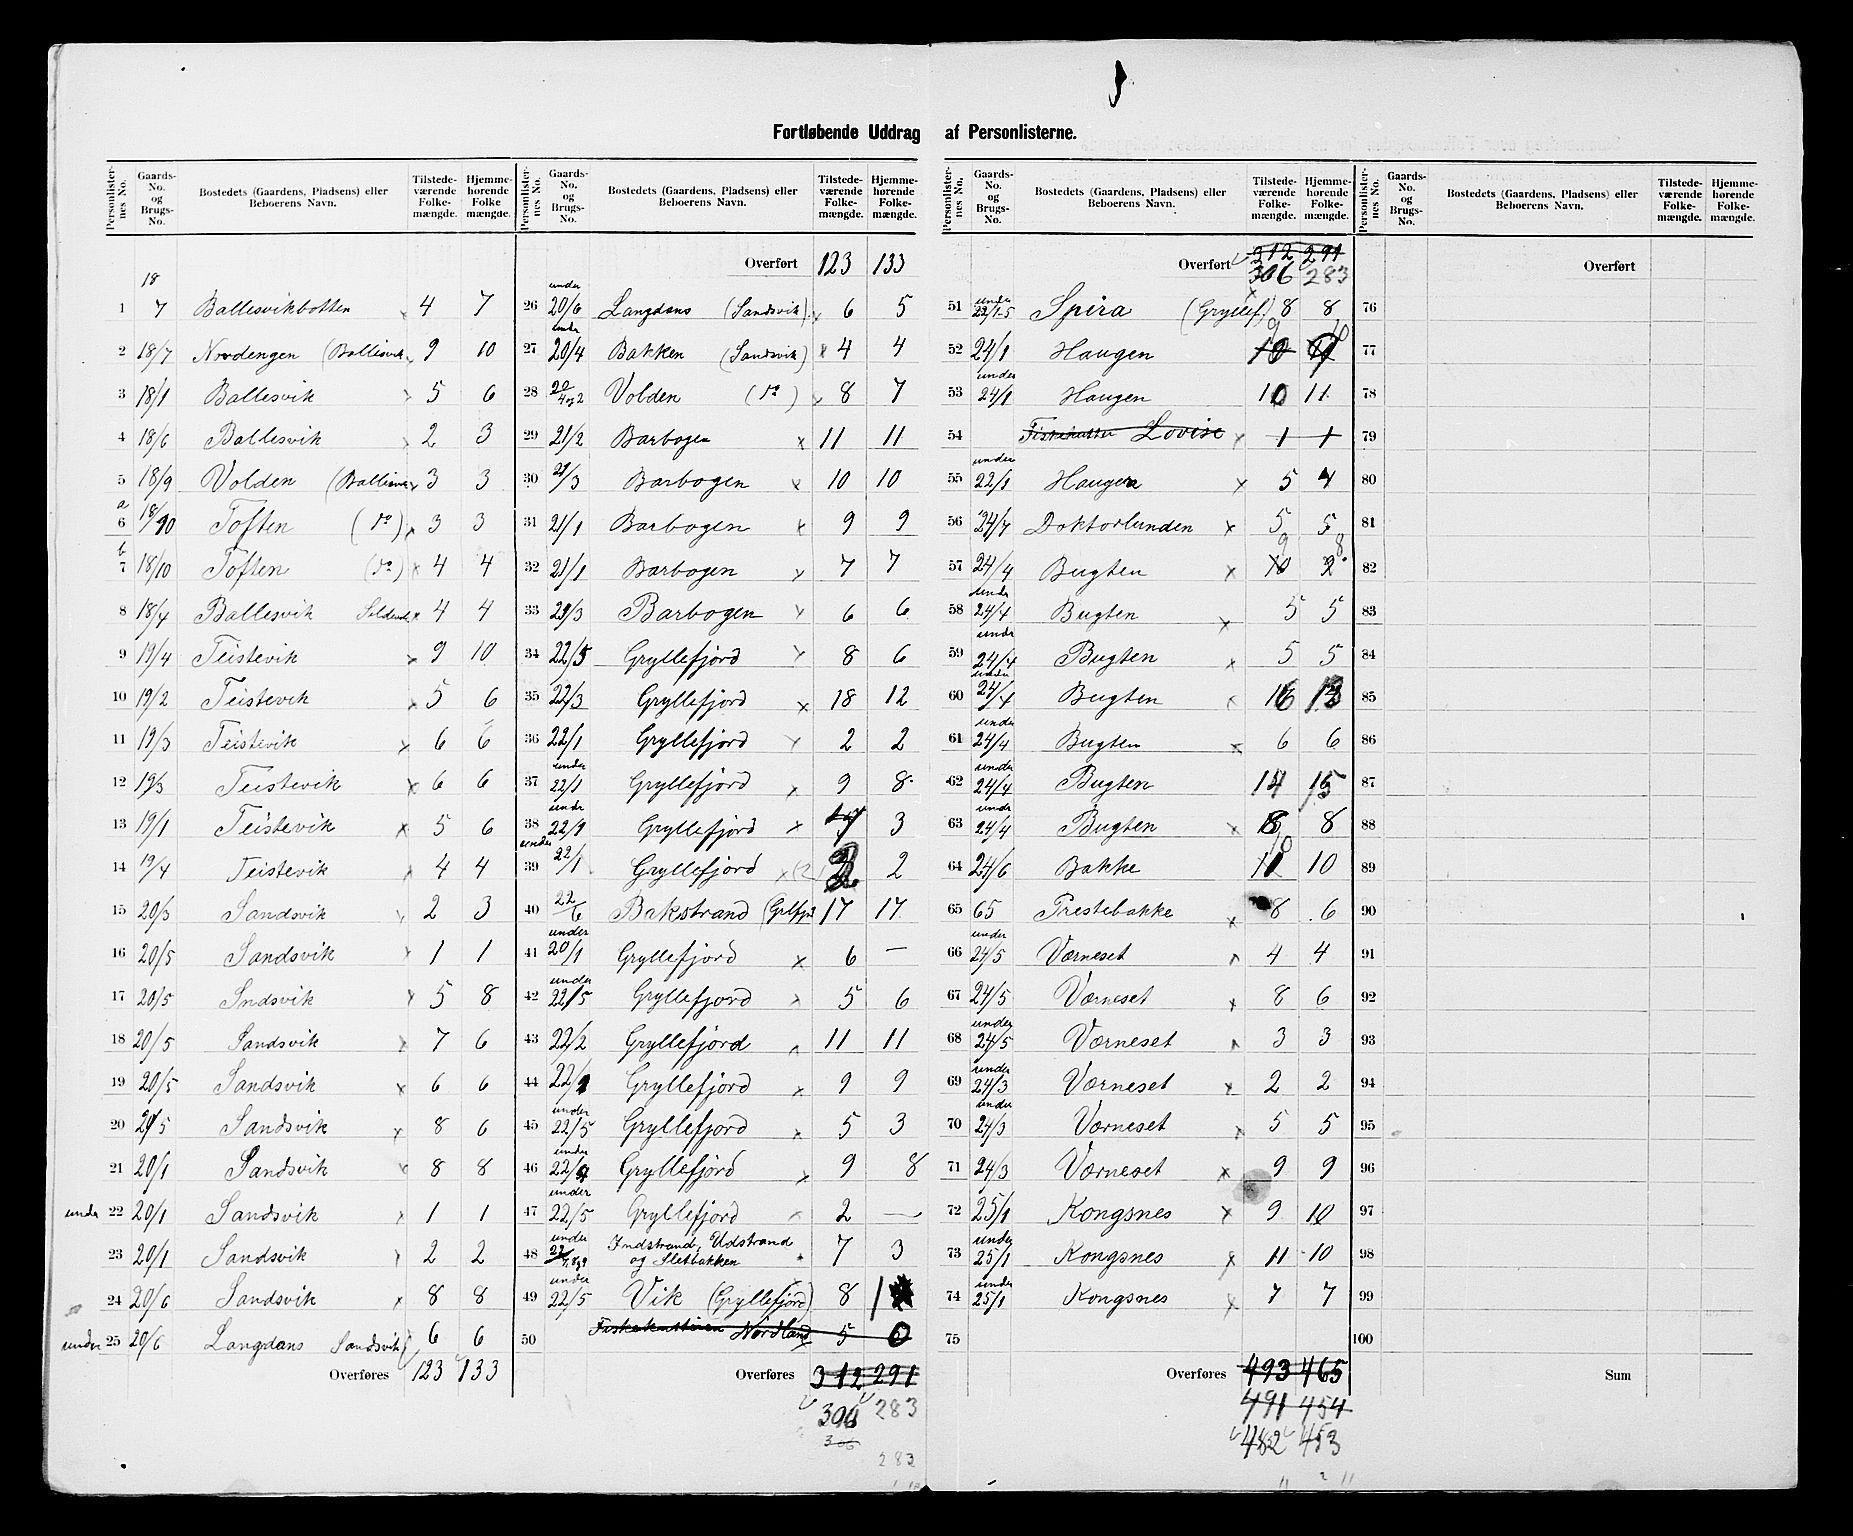 Fortløbende Uddrag af Personlisterne.
Personlisternes No. | Gaards-No. og Brugs-No. | Bostedets (Gaardens, Pladsens) eller Beboerens Navn. | Tilstedeværende Folkemængde. | Hjemmehørende Folkemængde.
1 18 7 Ballesvikbotten 4 7
2 18/7 Nordengen (Ballesvik 9 10
3 18/1 Ballesvik 5 6
4 18/6 Ballesvik 2 3
5 18/9 Volden 3 3
a 6 18/10 Toften (do) 3 3
b 7 18/10 Toften (do) 4 4
8 18/4 Ballesvik 4 4
9 19/4 Teistevik 9 10
10 19/2 Teistevik 5 6
11 19/3 Teistevik 6 6
12 19/3 Teistevik 6 6
13 19/1 Teistevik 5 6
14 19/4 Teistevik 4 4
15 20/3 Sandsvik 2 3
16 20/5 Sandsvik 1 1
17 20/5 Sndsvik 5 8
18 20/5 Sandsvik 7 6
19 20/5 Sandsvik 6 6
20 Sandsvik 8 6
21 20/1 Sandsvik 8 8
under 22 20/1 Sandsvik 1 1
23 20/1 Sandsvik 2 2
24 20/6 Sandsvik 8 8
under 25 20/6 Langdans Sandsvik 6 6
Overføres 123 133
Personlisternes No. | Gaards-No. og Brugs-No. | Bostedets (Gaardens, Pladsens) eller Beboerens Navn. | Tilstedeværende Folkemængde. | Hjemmehørende Folkemængde.
Overført 123 133
26 under 20/6 Langdans (Sandsvik) 6 5
27 under 20/4 Bakken (Sandsvik) 4 4
28 20/4 og 2 Volden (do) 8 7
29 21/2 Barbogen 11 11
30 21/3 Barbogen 10 10
31 21/1 Barbogen 9 9
32 21/1 Barbogen 7 7
33 Barbogen 6 6
34 22/5 Gryllefjord 8 6
35 22/3 Gryllefjord 18 12
36 22/1 Gryllefjord 2 2
37 under 22/1 Gryllefjord 9 8
38 under Gryllefjord 3
39 under 22/1 Gryllefjord 2 2
40 22/6 Bakstrand 17 17
41 under 20/1 Gryllefjord 6 —
42 under 22/5 Gryllefjord 5 6
43 22/2 Gryllefjord 11 11
44 Gryllefjord 9 9
45 under 22/5 Gryllefjord 5 3
46 under Gryllefjord 9 8
47 under 22/5 Gryllefjord 2 —
48 under Indstrand, Udstrand og Sletbakken 7 3
49 under 22/5 Vik (Gryllefjord) 8
50 Fiskekutteren Nordland 5 0
Overføres 312 291
306 283
306
283
Personlisternes No. | Gaards-No. og Brugs-No. | Bostedets (Gaardens, Pladsens) eller Beboerens Navn. | Tilstedeværende Folkemængde. | Hjemmehørende Folkemængde.
Overført 312 291
306 283
51 under 22/1-5 Spira (Gryllef) 8 8
52 24/1 Haugen 10 9 10
53 under 24/1 Haugen 10 11
54 Fiskekutter Lovise 1 1
55 under 22/1 Haugen 5 4
56 24/7 Doktorlunden 5 5
57 24/4 Bugten 10 9 8
58 under 24/4 Bugten 5 5
59 under 24/4 Bugten 5 5
60 under 24/4 Bugten 16 13
61 under 24/4 Bugten 6 6
62 under 24/4 Bugten 14 15
63 under 24/4 Bugten 8 8
64 24/6 Bakke 11 10 10
65 65 Prestebakke 8 6
66 under 24/5 Værneset 4 4
67 24/5 Værneset 8 6
68 under 24/5 Værneset 3 3
69 under 24/3 Værneset 2 2
70 under 24/3 Værneset 5 5
71 24/3 Værneset 9 9
72 25/1 Kongsnes 9 10
73 under 25/1 Kongsnes 11 10
74 under 25/1 Kongsnes 7 7
75
Overføres 493 465
491 454
482 453
Personlisternes No. | Gaards-No. og Brugs-No. | Bostedets (Gaardens, Pladsens) eller Beboerens Navn. | Tilstedeværende Folkemængde. | Hjemmehørende Folkemængde.
Overført
76
77
78
79
80
81
82
83
84
85
86
87
88
89
90
91
92
93
94
95
96
97
98
99
100
Sum